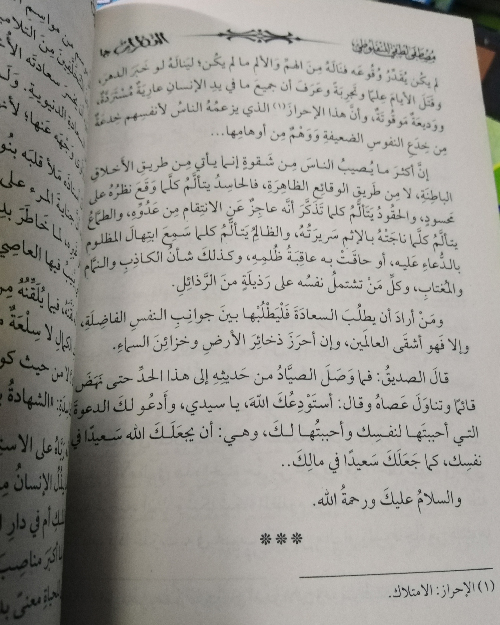 مصطفى لطفي المنفلوطي النظرات جـ١
لم يكن يُقدِّرُ وُقُوعَه فنَالَهُ مِنَ الهمِّ والألم ما لم يكُن؛ ليَنالَهُ لو خَبَرَ الدهرَ،
وقَتَلَ الأيامَ عِلمًا وتَجرِبَةً وعَرَفَ أن جميعَ ما في يدِ الإنسانِ عاريةٌ مُستَرَدَّةٌ،
ووَديعَةٌ مَوقُوتَةٌ، وأنَّ هذا الإحرازَ(١) الذي يزعمُهُ الناسُ لأنفسِهم خِدعَةٌ
مِن خِدَعِ النفوسِ الضعيفةِ ووَهْمٌ مِن أوهامِها...
إنَّ أكثرَ ما يُصيبُ الناسَ مِن شَقوةٍ إنما يأتي مِن طريقِ الأخلاقِ
الباطِنَةِ، لا مِن طَريقِ الوقائعِ الظاهرَةِ، فالحاسِدُ يتألَّمُ كلَّما وَقَعَ نظرُهُ على
محسودِهِ، والحَقُودُ يَتألَّمُ كلما تَذَكَّرَ أنَّه عاجِزٌ عَنِ الانتقامِ مِن عَدُوِّهِ، والطمَّاعُ
يتألمُ كلَّما ناجَتْهُ بالإثمِ سريرَتُهُ، والظالمُ يتألمُ كلما سَمِعَ ابتهالَ المظلومِ
بالدُّعاءِ عَليهِ، أو حاقَتْ به عاقِبَةُ ظُلمِهِ، وكذلكَ شأنُ الكاذِبِ والنمَّامِ
والمُغتابِ، وكلِّ مَنْ تشتملُ نفسُه على رَذيلَةٍ منَ الرَّذائلِ.
ومَنْ أرادَ أن يطلُبَ السعادَةَ فَلْيَطْلُبْها بينَ جوانِبِ النفسِ الفاضِلَةِ،
وإلا فهو أشقَى العالمين، وإن أحرَزَ ذخائِرَ الأرضِ وخزائِنَ السماءِ.
قالَ الصديقُ: فما وَصَلَ الصيَّادُ من حَديثِهِ إلى هذا الحدِّ حتى نَهَضَ
قائمًا وتناوَلَ عَصاهُ وقال: أستَوْدِعُكَ اللهَ، يا سيدي، وأدعُو لكَ الدعوةَ
التي أحببتَها لنفسِكَ وأحببتُها لكَ، وهي: أن يجعَلَكَ الله سَعيدًا في
نفسِكَ، كما جَعَلَكَ سَعيدًا في مالِكَ..
والسلامُ عليكَ ورحمةُ الله.
***
(١) الإحراز: الامتلاك.